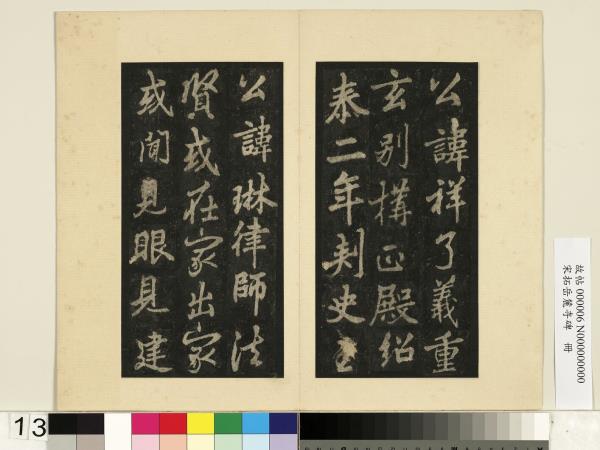 公諱祥了義重
玄別構正殿紹
泰二年刺史王
公諱琳律師法
賢或在家出家
或聞見眼見建
故帖 000006 N000000000
宋拓岳麓寺碑 冊
13